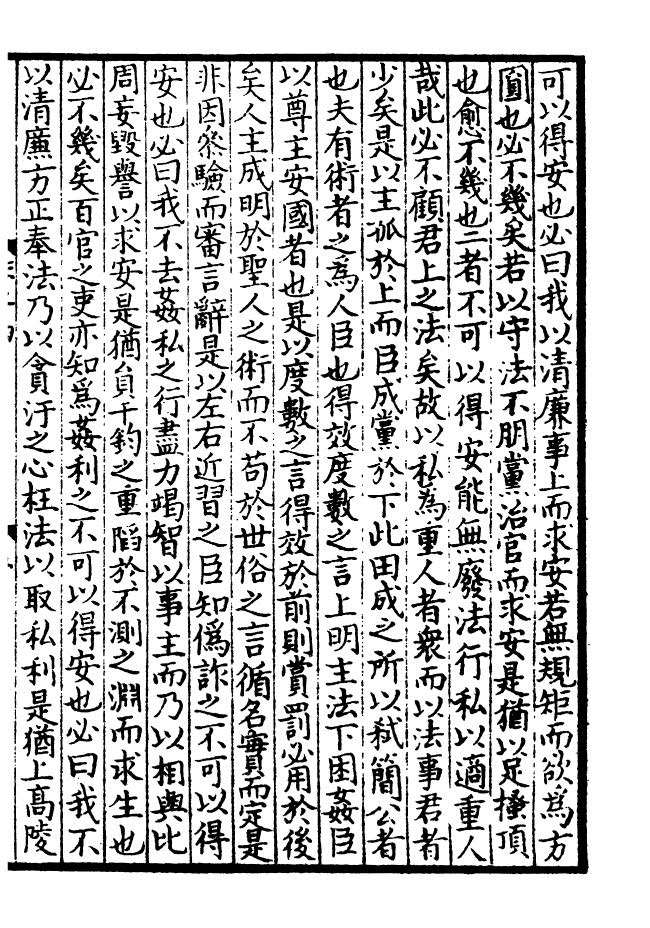 可以得安也必曰我以清廉事上而求安若無規矩而欲爲方
圓也必不幾矣若以守法不朋黨治官而求安是猶以足搔頂
也愈不幾也二者不可以得安能無廢法行私以適重人
哉此必不顧君上之法矣故以私爲重人者衆而以法事君者
少矣是以主孤於上而臣成黨於下此田成之所以弑簡公者
也夫有術者之爲人臣也得效度數之言上明主法下困姦臣
以尊主安國者也是以度數之言得效於前則賞罰必用於後
矣人主成明於聖人之術而不苟於世俗之言循名實而定是
非因參驗而審言辭是以左右近習之臣知僞詐之不可以得
安也必曰我不去姦私之行盡力竭智以事主而乃以相與比
周妄毀譽以求安是猶負千鈞之重陷於不測之淵而求生也
必不幾矣百官之吏亦知爲姦利之不可以得安也必曰我不
以清廉方正奉法乃以貪汙之心枉法以取私利是猶上高陵